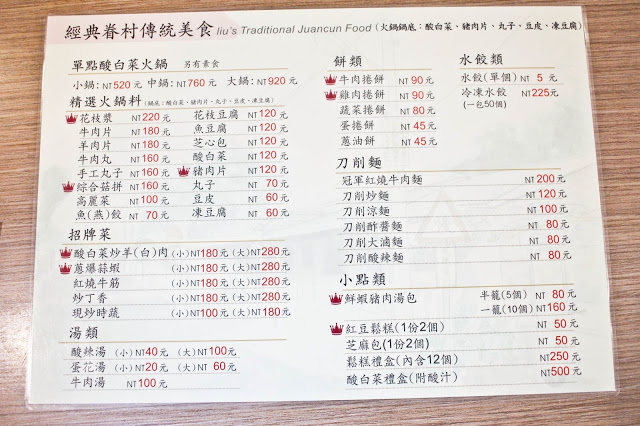 經典眷村傳統美食 liu's Traditional Juancun Food (火鍋鍋底：酸白菜、豬肉片、丸子、豆皮、凍豆腐)
單點酸白菜火鍋 另有素食
小鍋:NT520元 中鍋:NT760元 大鍋:NT920元
精選火鍋料 (鍋底：酸白菜、豬肉片、丸子、豆皮、凍豆腐)
花枝漿 NT220元 花枝豆腐 NT120元
牛肉片 NT180元 魚豆腐 NT120元
羊肉片 NT180元 芝心包 NT120元
牛肉丸 NT160元 酸白菜 NT120元
手工丸子 NT160元 豬肉片 NT120元
綜合菇拼 NT160元 丸子 NT 70元
高麗菜 NT100元 豆皮 NT 60元
魚(燕)餃 NT 70元 凍豆腐 NT 60元
招牌菜
酸白菜炒羊(白)肉 (小)NT180元 (大)NT280元
蔥爆蒜蝦 (小)NT180元 (大)NT280元
紅燒牛筋 (小)NT180元 (大)NT280元
炒丁香 (小)NT180元 (大)NT280元
現炒時蔬 (小)NT100元 (大)NT180元
湯類
酸辣湯 (小)NT40元 (大)NT100元
蛋花湯 (小)NT20元 (大)NT 60元
牛肉湯 NT100元
餅類
牛肉捲餅 NT 90元
雞肉捲餅 NT 90元
蔬菜捲餅 NT 80元
蛋捲餅 NT 45元
蔥油餅 NT 45元
水餃類
水餃(單個) NT 5元
冷凍水餃 NT225元
(一包50個)
刀削麵
冠軍紅燒牛肉麵 NT 200元
刀削炒麵 NT 120元
刀削涼麵 NT 100元
刀削酢醬麵 NT 80元
刀削大滷麵 NT 80元
刀削酸辣麵 NT 80元
小點類
鮮蝦豬肉湯包 半籠(5個) NT 80元
一籠(10個) NT160元
紅豆鬆糕(1份2個) NT 50元
芝麻包(1份2個) NT 50元
鬆糕禮盒(內含12個) NT250元
酸白菜禮盒(附酸汁) NT500元